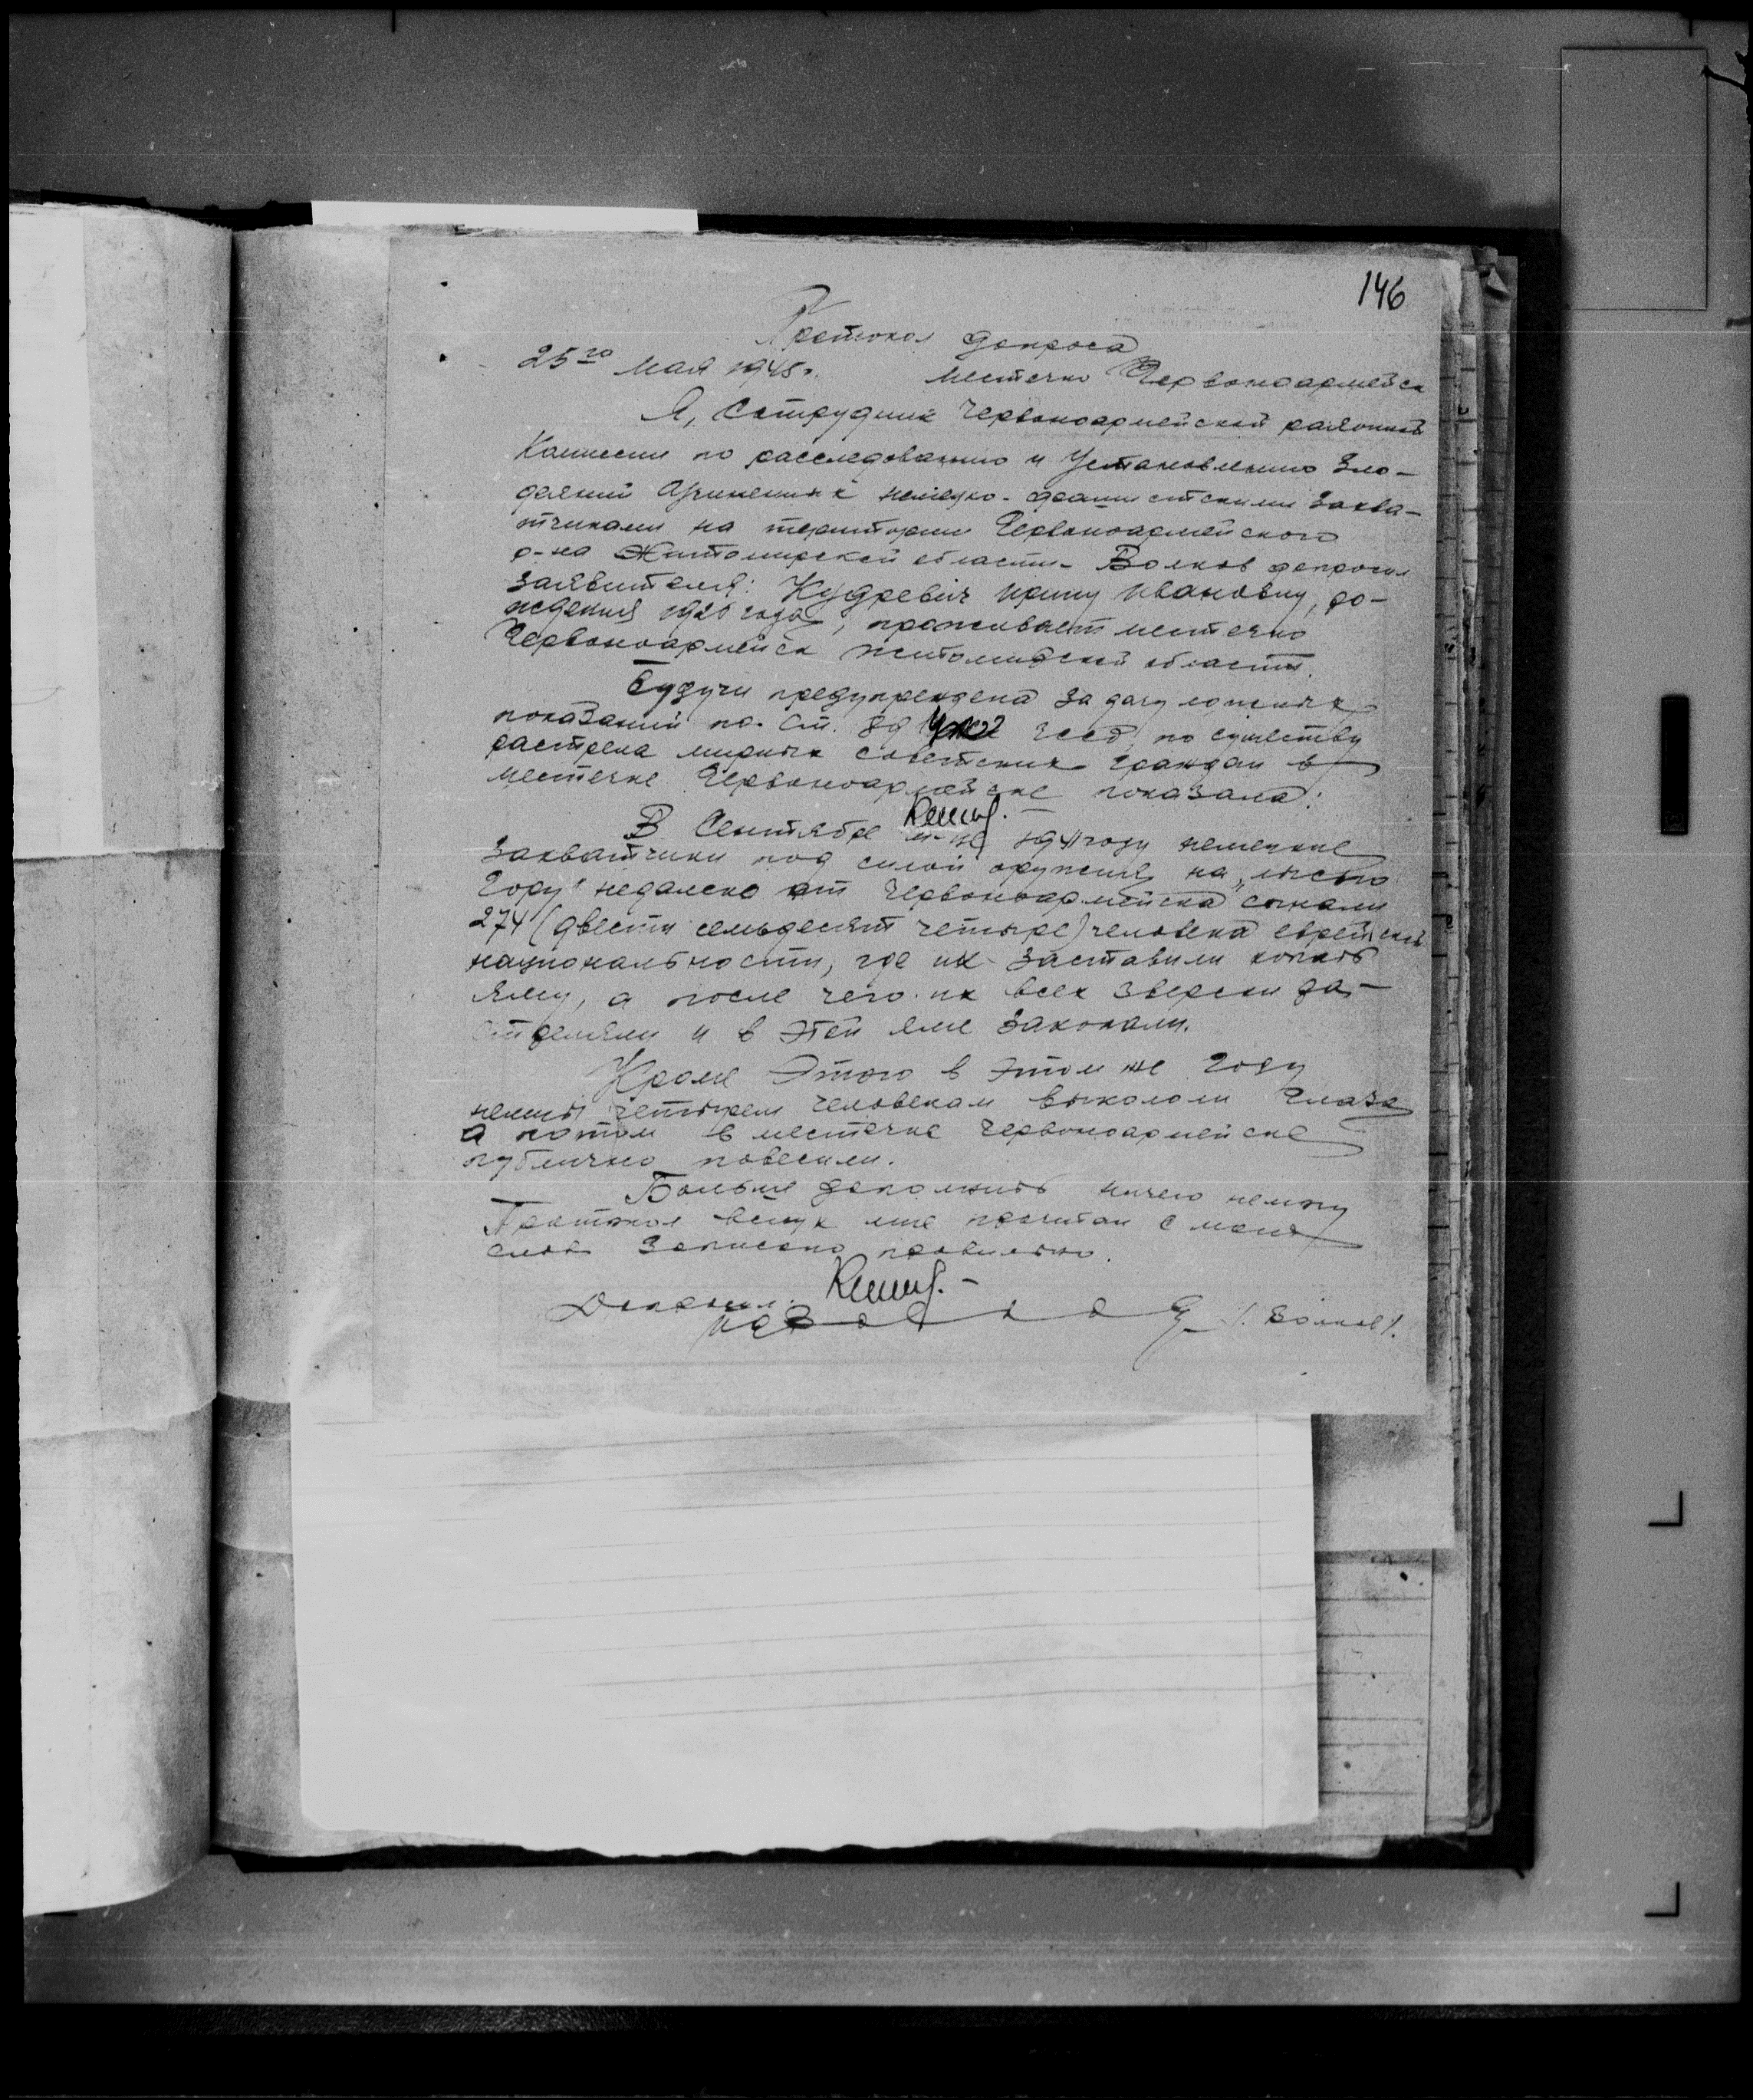 146
Протокол допроса
25го мая 1945г. местечко Червоноармейск
Я, Сотрудник Червоноармейской районной
Комиссии по расследованию и Установлению Зло-
деяний немецко-фашистскими Захва-
тчиками на територии Червоноармейского
р-на Житомирской области - Волков допросил
Заявителя: Кудревич Ирину Ивановну, ро-
ждения 1920 года, проживает местечко
Червоноармейск житомирской области.
Будучи предупреждена за дачу ложных
показаний по ст. 89 УССР, по существу
растрела мирных советских Граждан в
местечке Червоноармейске показала:
В Сентябре м-це 1941 году немецкие
Захватчики под силой оружия на „лысую
Гору" недалеко от Червоноармейска согнали
274 (двести семьдесят четыре) человека еврейской
национальности, где их заставили копать
Яму, а после чего их всех зверски ра-
стреляли и в этой яме Закопали.
Кроме Этого в Этом же году
немцы четырем человекам выкололи Глаза
а потом в местечке Червоноармейске
публично повесили.
Больше дополнить ничего немогу
Протокол вслух мне прочитан с моих
слов Записано правильно.
Допросил: /. Волков/.